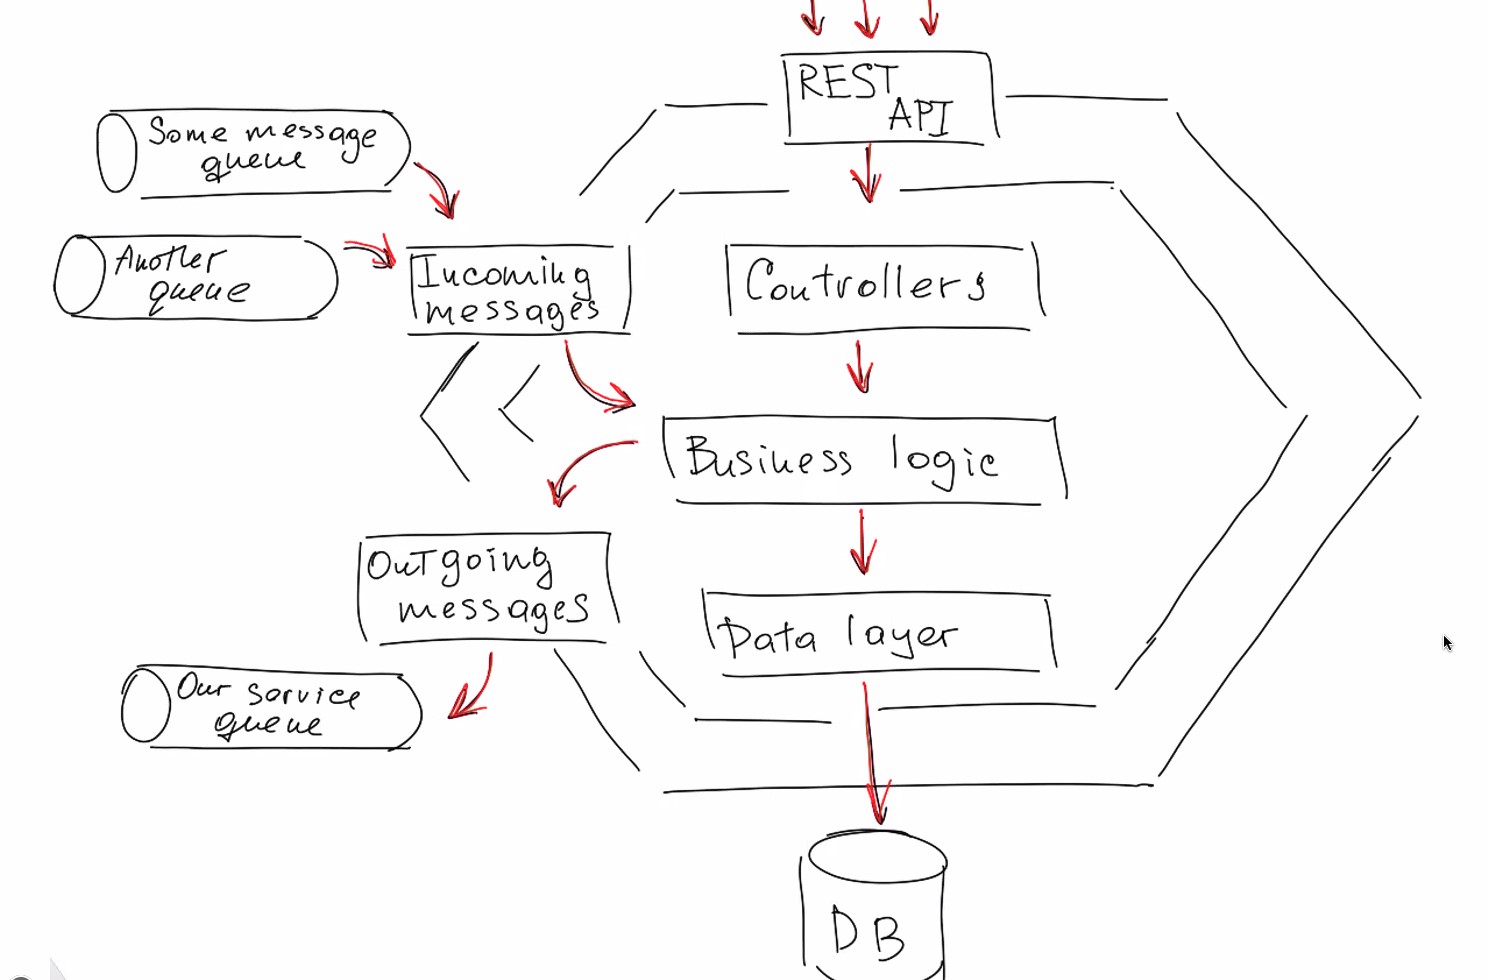 REST
API
Some message
queue
Another
queue
Incoming
messages
Controllers
Business logic
Outgoing
messages
Data layer
Our service
queue
DB